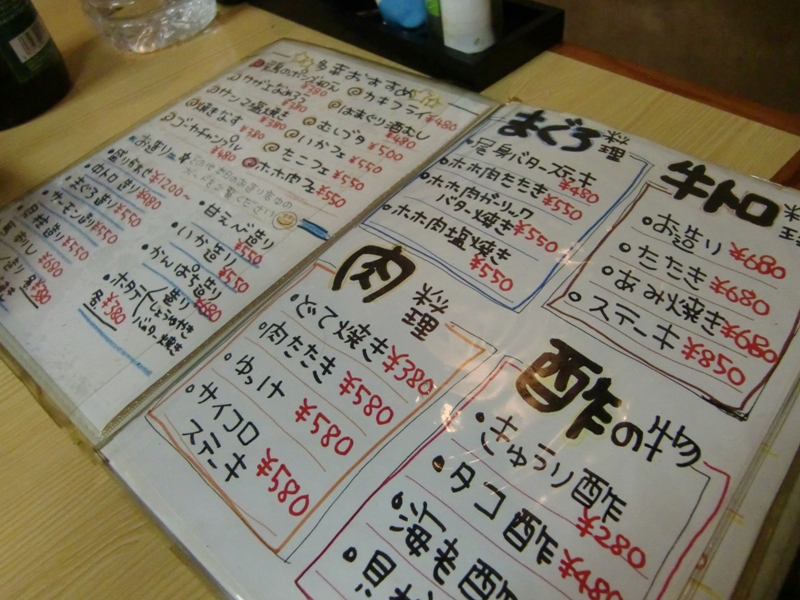 おすすめ
カキフライ ¥480
¥380
はまぐり酒むし ¥480
サザエなめろう ¥380
むしブタ ¥500
サンマ塩焼き ¥380
いかフェ ¥550
焼きなす ¥380
たこフェ ¥550
ゴーヤチャンプル ¥480
ホホ肉フェ ¥550
お造り
盛り合わせ ¥1200〜
中トロ造り ¥980
まぐろ造り ¥550
サーモン造り ¥550
¥550
¥680
甘えび造り ¥550
いか造り ¥550
かんぱち造り ¥680
ホタテ 造り しょうゆやき バター焼き
各¥580
まぐろ料理
尾身バターステーキ ¥480
ホホ肉たたき ¥550
ホホ肉ガーリックバター焼き ¥550
ホホ肉塩焼き ¥550
牛トロ料理
お造り ¥680
たたき ¥680
あみ焼き ¥680
ステーキ ¥580
肉料理
どて焼き ¥380
肉たたき ¥580
ゆっけ ¥580
サイコロステーキ ¥580
酢の物
きゅうり酢 ¥280
タコ酢 ¥480
海老酢